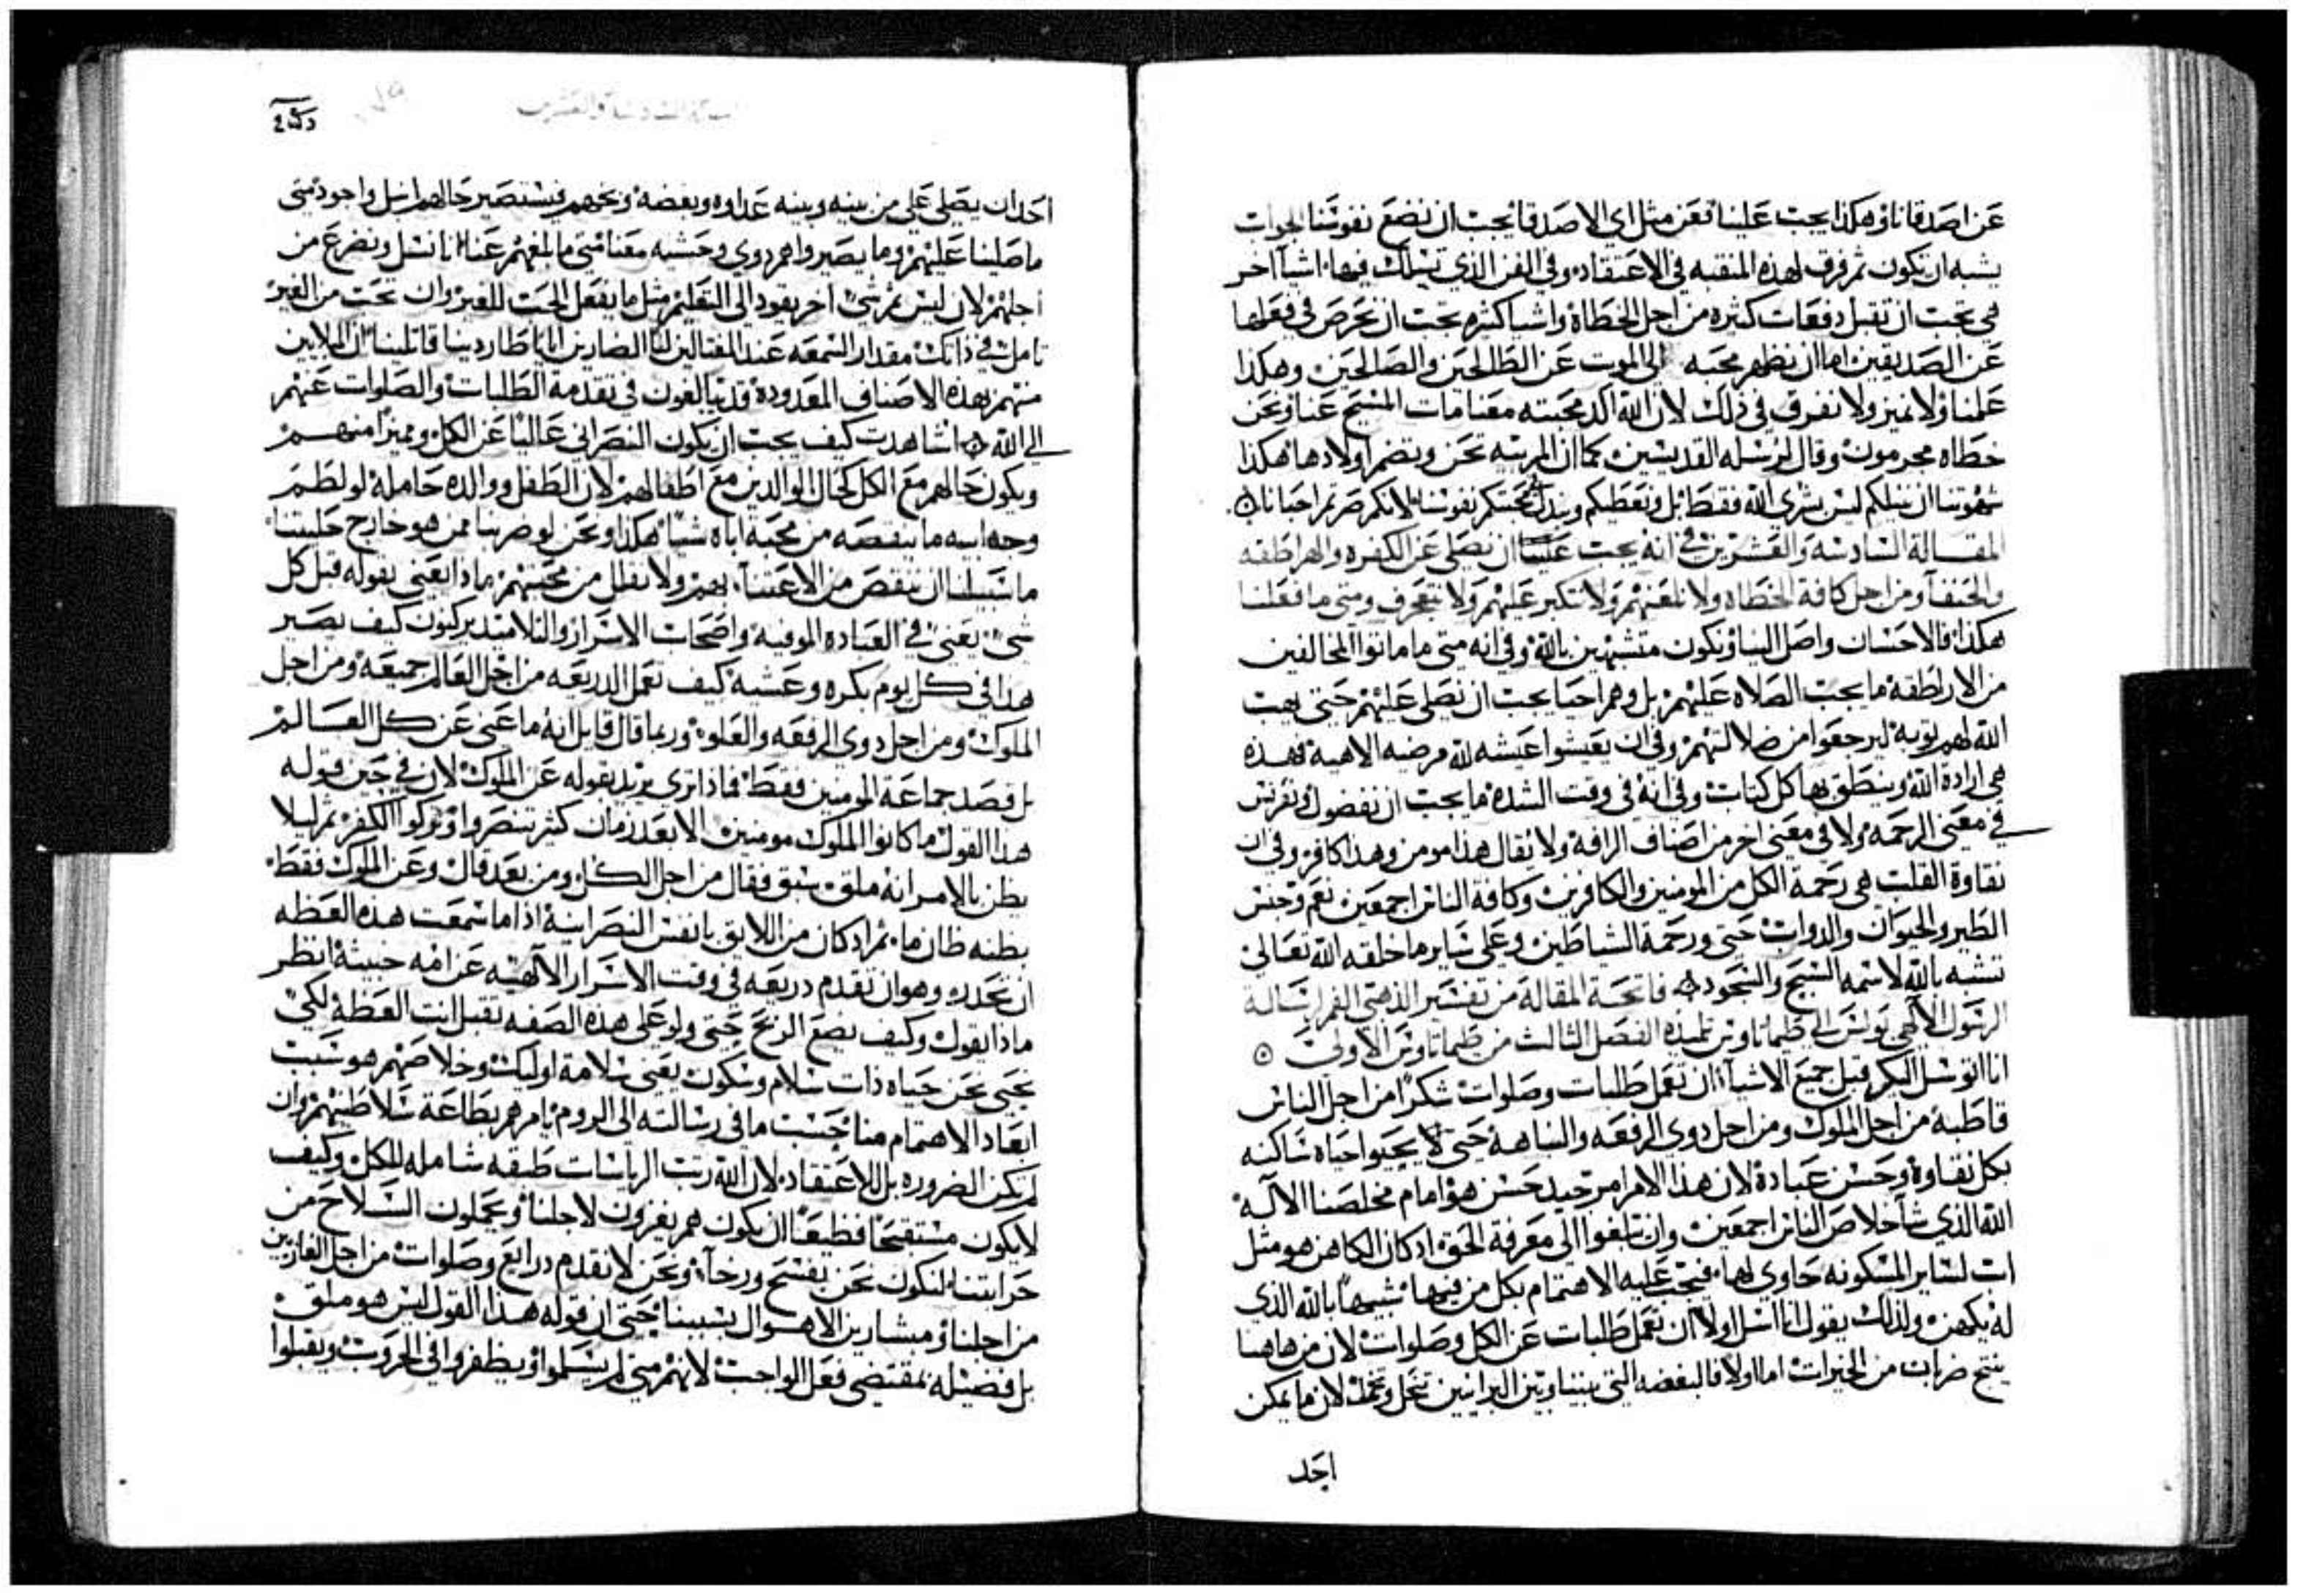 عن اصدقانا وهكذا يجب علينا فعن مثل اي الاصدقا يجب ان نضع نفوسنا الجواب
يشبه ان تكون ثم فرق لهذه المنقبه في الاعتقاد وفي الفن الذي تسلك فيها اشيآ اخر
هي تحب ان تقبل دفعات كثيره من اجل الخطاة واشيا كثيره تحب ان تحرص في فعلها
عن الصديقين اما ان نظهر محبه الى الموت عن الطالحين والصالحين وهكذا
علمنا ولا نميز ولا نفرق في ذلك لان الله اكد محبته معنا مات المسيح عنا ونحن
خطاه مجرمون وقال لرسله القديسين كما ان المربيه تحن وتضم اولادها هكذا
شهوتنا ان ننيلكم ليس بشرى الله فقط بل ونعطيكم ونبدل نفوسنا لانكم صرتم احبانا
المقالة السادسه والعشرين في انه يجب علينا ان نصلي عن الكفره والهراطقه
والحنفآ ومن اجل كافة الخطاه ولا نلعنهم ولا نتكبر عليهم ولا نتعجرف ومتى ما فعلنا
هكذا فالاحسان واصل الينا ونكون متشبهين بالله وفي انه متى ما ماتوا المخالفين
من الاراطقة ما يجب الصلاه عليهم بل وهم احيا يجب ان نصلي عليهم حتى يهب
الله لهم توبة ليرجعوا من ضلالتهم وفي ان يعيشوا عيشه لله مرضيه الاهية فهذه
هي ارادة الله وينطق بها كل كتاب وفي انه في وقت الشده ما يجب ان نفصول ونفرس
في معنى الرحمة ولا في معنى اخر من اصناف الرافة ولا يقال هذا مومن وهذا كافر وفي ان
نقاوة القلب هي رحمة الكل من المومنين والكافرين وكافة الناس اجمعين نعم وجنس
الطير والحيوان والدواب حتى ورحمة الشياطين وعلى ساير ما خلقه الله تعالى
تشبه بالله لاسمه السبح والسجود فاتحة المقالة من تفسير الذهبي الفم لرسالة
الرسول الالهي بولس الى طيماثاوس تلميذه الفصل الثالث من طيماثاوس الاولى
انا اتوسل اليكم قبل جميع الاشيآ ان نعمل طلبات وصلوات شكرا من اجل الناس
قاطبة من اجل الملوك ومن اجل دوي الرفعه والنباهة حتى يحيوا حياه ساكنه
بكل نقاوة وحسن عبادة لان هذا الامر امر جيد حسن هو امام مخلصنا الاله
الله الذي شآ خلاص الناس اجمعين وان يبلغوا الى معرفة الحق اد كان الكاهن هو مثل
اب لساير المسكونه حاوي لها فيجب عليه الاهتمام بكل من فيها شبيها بالله الذي
له يكهن ولذلك يقول انا اسل اولا ان نعمل طلبات عن الكل وصلوات لان من هاهنا
ينتج ضربان من الخيرات اما اولا فالبغضه التي بيننا وبين البرانيين تنحل وتخمد لان ما يمكن
احد
احدا ان يصلي على من بينه وبينه عداوه وبغضه ونحوهم فستصير حالهم انبل واجود متى
ما صلينا عليهم وما يصيروا هم دوي وحشيه معنا متى ما بلغهم عنا اننا نسل ونضرع من
اجلهم لان ليس ثم شي اخر يقود الى التعلم مثل ما يفعل الحب للغير وان تحب من الغير
تامل في ذاتك مقدار السمعه عند المغتالين لنا الضاربين ايانا طاردينا قاتلينا ان الملايين
منهم بهذه الاصناف المعدودة قد يتالفون في تقدمة الطلبات والصلوات عنهم
الى الله اشاهدت كيف يجب ان يكون النصراني عاليا عن الكل ومميزا منهم
ويكون حالهم مع الكل كحال الوالدين مع اطفالهم لان الطفل ووالده حامله لو لطم
وجه ابيه ما ينقصه من محبة اباه شيا هكذا ونحن لو ضربنا ممن هو خارج حليتنا
ما سبيلنا ان ننقص من الاعتنآ بهم ولا نقلل من محبتهم ماذا يعني بقوله قبل كل
شي يعني في العباده الموفيه واضحات الاسرار والتلاميذ يركبون كيف يصير
هذا في كل يوم بكره وعشيه كيف نعمل الدريعه من اجل العالم جميعه ومن اجل
الملوك ومن اجل دوى الرفعه والعلو وربما قال قايل انه ما عنى عن كل العالم
بل قصد جماعة المومنين فقط فماذا ترى يريد بقوله عن الملوك لان في حين قوله
هذا القول ما كانوا الملوك مومنين الا بعد زمان كثير تنصروا وتركوا الكفر ثم ليلا
يظن بالامر انه ملق سبق فقال من اجل الكل ومن بعد قال وعن الملوك فقط
بظنه ظان ما ثم اد كان من اللايق بانفس النصرانية اذا ما سمعت هذه العظه
ان تخدر وهو ان تقدم دريعه في وقت الاسرار الالهيه عن امه خبيثة انظر
ماذا يقول وكيف يصنع الربح حتى ولو على هذه الصفه تقبل انت العظة لكي
نحيى نحن حياه ذات سلام وسكون يعني سلامة اوليك وخلاصهم هو سبب
ابعاد الاهتمام منا حسب ما في رسالته الى الروم يامرهم بطاعة سلاطينهم وان
لم تكن الضروره بل للاعتقاد لان الله رتب الرياسات طبقه شامله للكل وكيف
لا يكون مستقبحا فظيعا ان يكون هم يغزون لاجلنا ويحملون السلاح من
حرابتنا لنكون نحن بفسح ورخآ ونحن لا نقدم درايع وصلوات من اجل الغازيين
من اجلنا ومبشارين الاهوال بسببنا حتى ان قوله هذا القول ليس هو ملق
بل فضيله بمقتضى فعل الواجب لانهم متى لم يسلموا ويظفروا في الحروب ويقبلوا